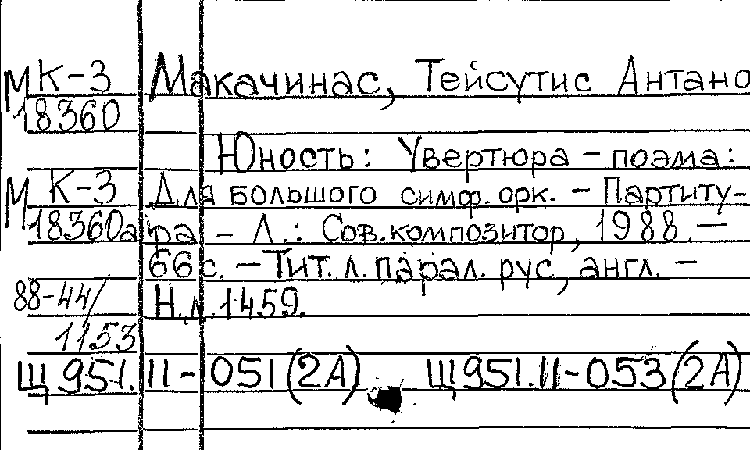 МК-3 Макачинас, Тейсутис Антано
18360
Юность: Увертюра-поэма:
МК-3 Для большого симф. орк. - Партиту-
18360а ра - Л.: Сов. композитор, 1988. -
66 с. - Тит. л. парал. рус, англ. -
88-44/ Н.л. 1459.
1153
Щ951.II-051(2А) Щ951.II-053(2А)